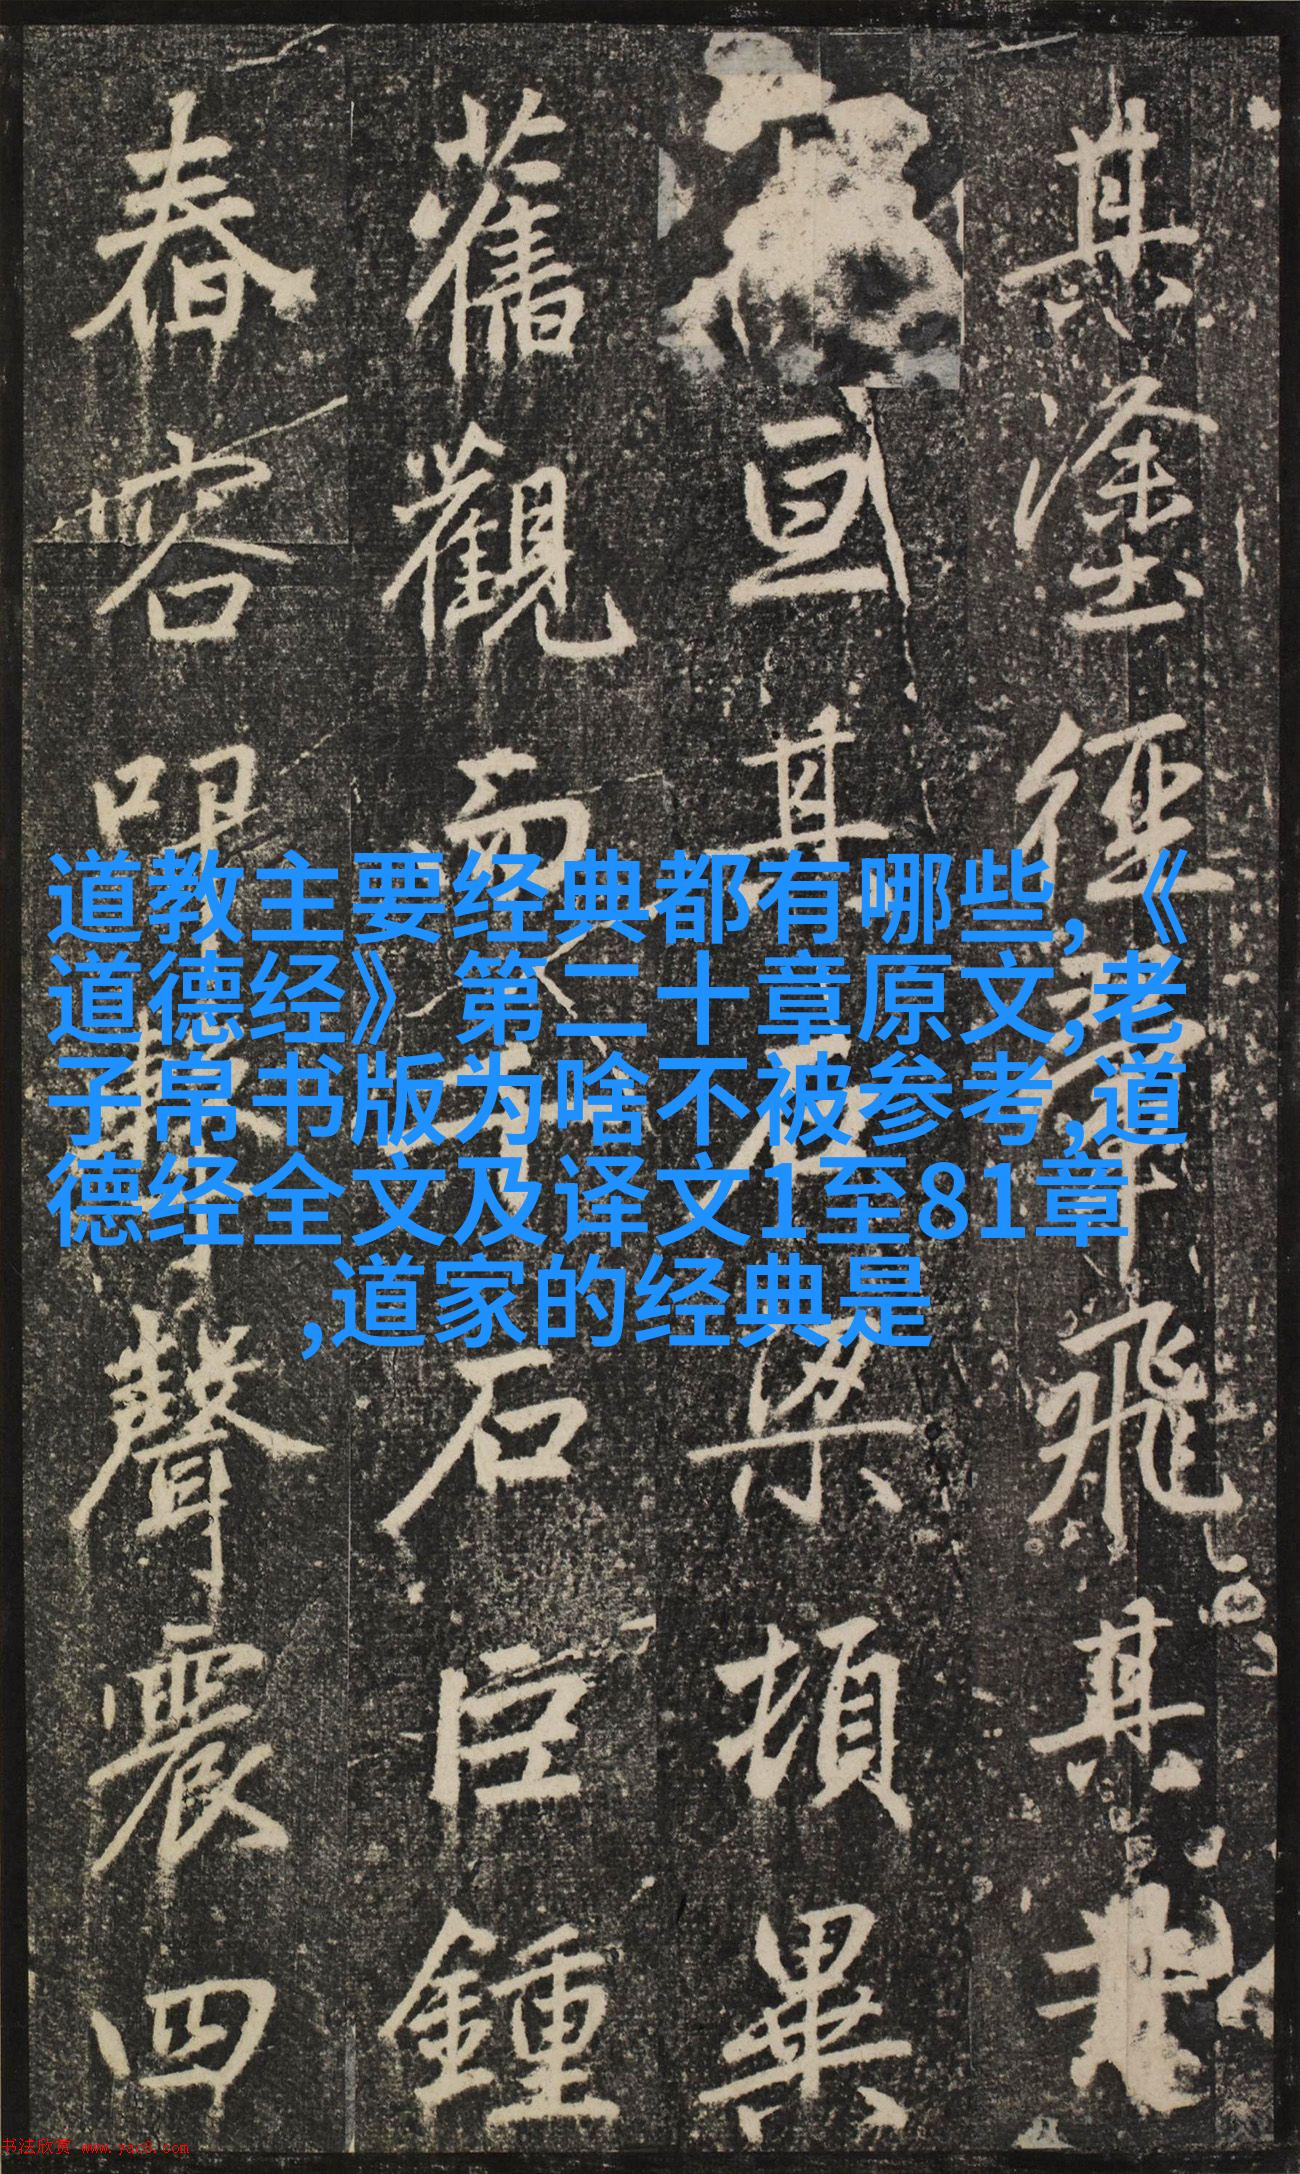 其塗經構飛其
亘其石梁頓畢
舊觀而石巨鍾
舂容聲震四
道教主要经典都有哪些,《
道德经》第二十章原文,老
子帛书版为啥不被参考,道
德经全文及译文1至81章
,道家的经典是
书法欣赏 www.yac8.com